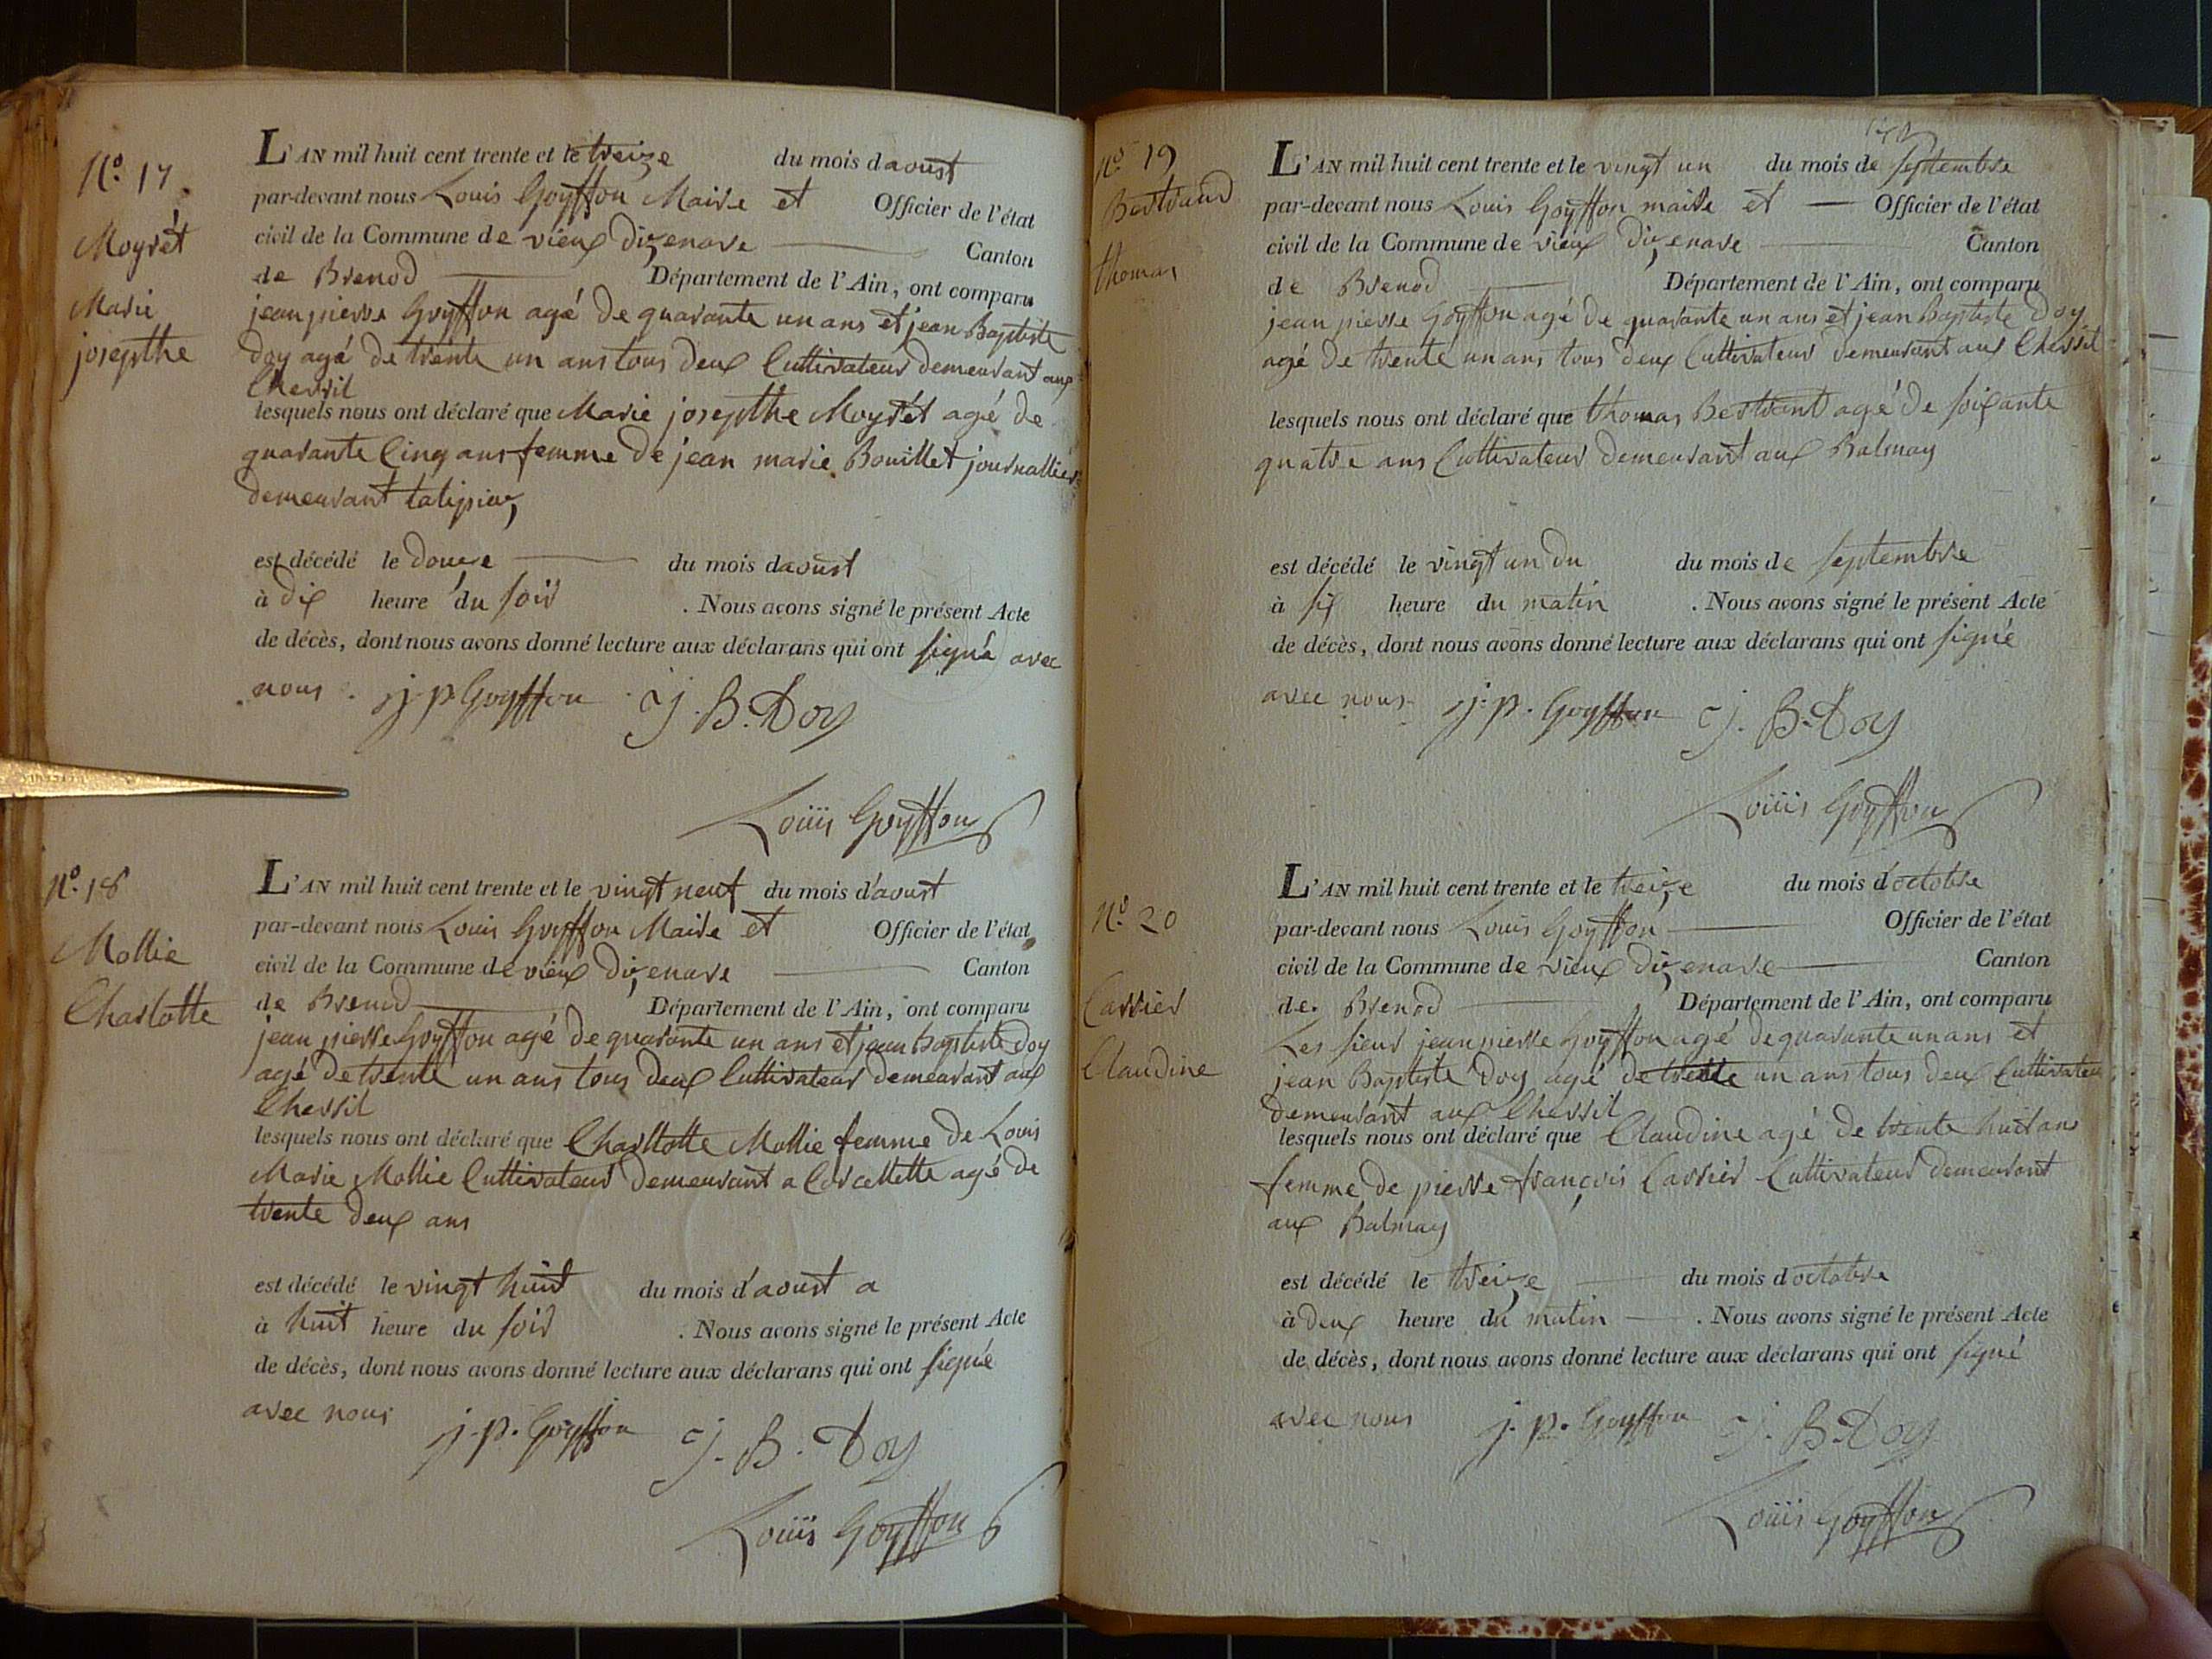 N.º 17
Moyrét
Marie
josepthe
L'AN mil huit cent trente et le treize du mois daoust
par-devant nous Louis Goyffon Maire et Officier de l'état
civil de la Commune de vieux dizenave Canton
de Brenod Département de l'Ain, ont comparu
jean pierre Goyffon agé de quarante un ans et jean Baptiste
Doy agé de trente un ans tous deux Cultivateur demeurant aux
Chevril
lesquels nous ont déclaré que Marie josepthe Moyrét agé de
quarante Cinq ans femme de jean marie Bouillet journallier
demeurant
est décédé le douze du mois daoust
à dix heure du soir . Nous avons signé le présent Acte
de décès, dont nous avons donné lecture aux déclarans qui ont signé avec
nous. j. p. Goyffon J. B. Doy
Louis Goyffon
N.º 18
Mollie
Charlotte
L'AN mil huit cent trente et le vingt neuf du mois d'aoust
par-devant nous Louis Goyffon Maire et Officier de l'état
civil de la Commune de vieux dizenave Canton
de Brenod Département de l'Ain, ont comparu
jean pierre Goyffon agé de quarante un ans et jean Baptiste Doy
agé de trente un ans tous deux Cultivateur demeurant aux
Chevril
lesquels nous ont déclaré que Charltotte Mollie femme de Louis
Marie Mollie Cultivateur demeurant a Corcellette agé de
trente deux ans
est décédé le vingt huit du mois d'aoust a
à huit heure du soir . Nous avons signé le présent Acte
de décès, dont nous avons donné lecture aux déclarans qui ont signé
avec nous j. p. Goyffon J. B. Doy
Louis Goyffon
N.º 19
Bertrand
thomas
L'AN mil huit cent trente et le vingt un du mois de septembre
par-devant nous Louis Goyffon maire et Officier de l'état
civil de la Commune de vieux dizenave Canton
de Brenod Département de l'Ain, ont comparu
jean pierre Goyffon agé de quarante un ans et jean Baptiste Doy
agé de trente un ans tous deux Cultivateur demeurant aux Chevril
lesquels nous ont déclaré que thomas Bertrant agé de soixante
quatre ans Cultivateur demeurant aux Balmay
est décédé le vingt un du du mois de septembre
à six heure du matin . Nous avons signé le présent Acte
de décès, dont nous avons donné lecture aux déclarans qui ont signé
avec nous. j. p. Goyffon J. B. Doy
Louis Goyffon
N.º 20
Carrier
Claudine
L'AN mil huit cent trente et le treize du mois d'octobre
par-devant nous Louis Goyffon Officier de l'état
civil de la Commune de vieux dizenave Canton
de Brenod Département de l'Ain, ont comparu
Les sieur jean pierre Goyffon agé de quarante un ans et
jean Baptiste Doy agé de trente un ans tous deux Cultivateur
demeurant aux Chevril
lesquels nous ont déclaré que Claudine agé de trente huit ans
femme de pierre françois Carrier Cultivateur demeurant
aux Balmay
est décédé le treize du mois doctobre
à deux heure du matin . Nous avons signé le présent Acte
de décès, dont nous avons donné lecture aux déclarans qui ont signé
avec nous j. p. Goyffon J. B. Doy
Louis Goyffon